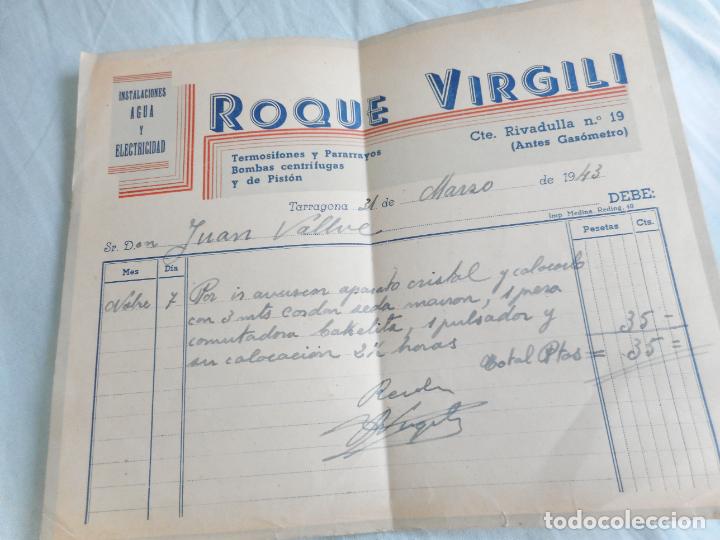 INSTALACIONES
AGUA
Y
ELECTRICIDAD
ROQUE VIRGILI
Termosifones y Pararrayos
Bombas centrífugas
y de Pistón
Cte. Rivadulla n.º 19
(Antes Gasómetro)
Tarragona 21 de Marzo de 1943
Imp Medina Reding, 10
DEBE:
Sr. Don Juan Vallve
Mes Día Pesetas Cts.
Nvbre 7 Por ir a buscar aparato cristal y colocarlo
con 3 mts cordon seda marron, 1 pera
conmutadora bakelita, 1 pulsador y 35 -
su colocación 2½ horas
Total Ptas = 35 =
todocoleccion.net